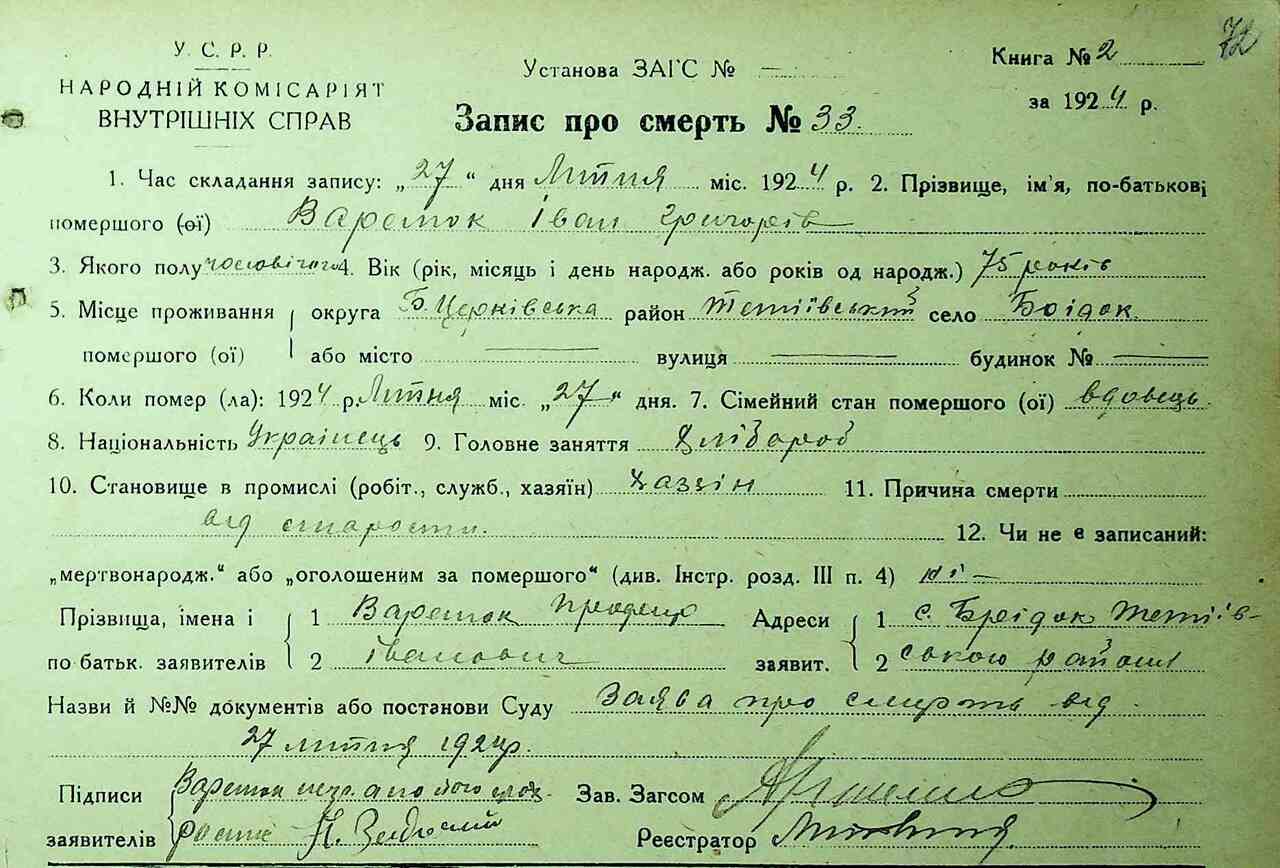 У. С. Р. Р.
НАРОДНІЙ КОМІСАРІЯТ
ВНУТРІШНІХ СПРАВ
Установа ЗАГС № —
Книга № 2
72
за 1924 р.
Запис про смерть № 33.
1. Час складання запису: „27“ дня Липня міс. 1924 р. 2. Прізвище, ім'я, по-батькові
помершого (ої) Іван Григорів
3. Якого полу чоловічого 4. Вік (рік, місяць і день народж. або років од народж.) 75 років
5. Місце проживання округа Б. Церківська район Тетіївський село
помершого (ої) або місто — вулиця — будинок № —
6. Коли помер (ла): 1924 р. Липня міс. „27“ дня. 7. Сімейний стан помершого (ої) вдовець.
8. Національність Українець 9. Головне заняття Хлібороб
10. Становище в промислі (робіт., служб., хазяїн) Хазяїн 11. Причина смерти
від старости. 12. Чи не є записаний:
„мертвонародж.“ або „оголошеним за помершого“ (див. Інстр. розд. III п. 4) ні —
Прізвища, імена і 1 Адреси 1 с. Тетіїв-
по батьк. заявителів 2 Іванович заявит. 2 ського району
Назви й №№ документів або постанови Суду Заява про смерть від
27 липня 1924 р.
Підписи Зав. Загсом
заявителів Реєстратор